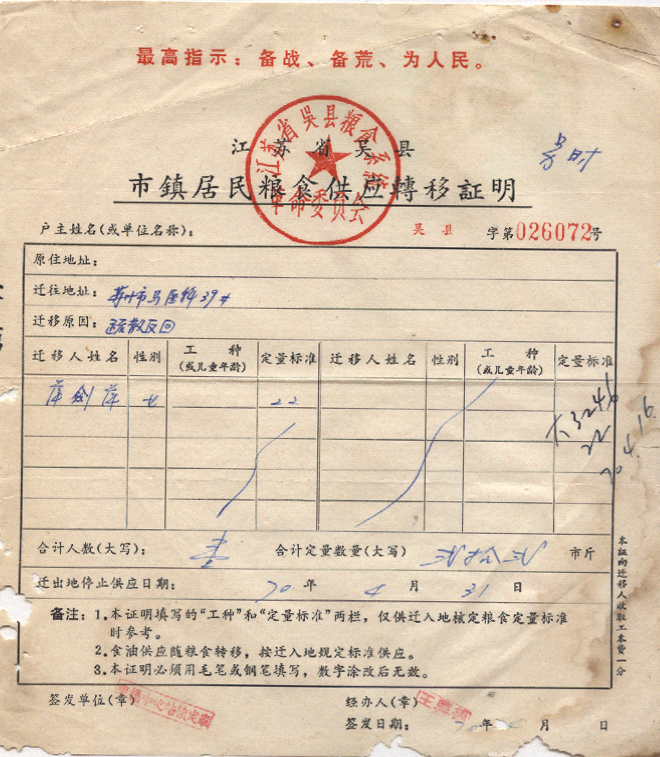 最高指示：备战、备荒、为人民。
江苏省吴县粮食系统
革命委员会
江苏省吴县
市鎮居民粮食供应轉移証明
户主姓名(或单位名称)：
吴县 字第026072号
原住地址：
迁往地址：苏州市马医科39#
迁移原因：疏散返回
迁移人姓名 性别 工种(或儿童年龄) 定量标准 迁移人姓名 性别 工种(或儿童年龄) 定量标准
女 22
22
70.4.16.
合计人数(大写)：壹 合计定量数量(大写) 贰拾贰 市斤
迁出地停止供应日期：70年4月31日
备注：1.本证明填写的“工种”和“定量标准”两栏，仅供迁入地核定粮食定量标准
时参考。
2.食油供应随粮食转移，按迁入地规定标准供应。
3.本证明必须用毛笔或钢笔填写，数字涂改后无效。
本证向迁移人收取工本费一分
签发单位(章)
经办人(章)
签发日期： 70年4月 日